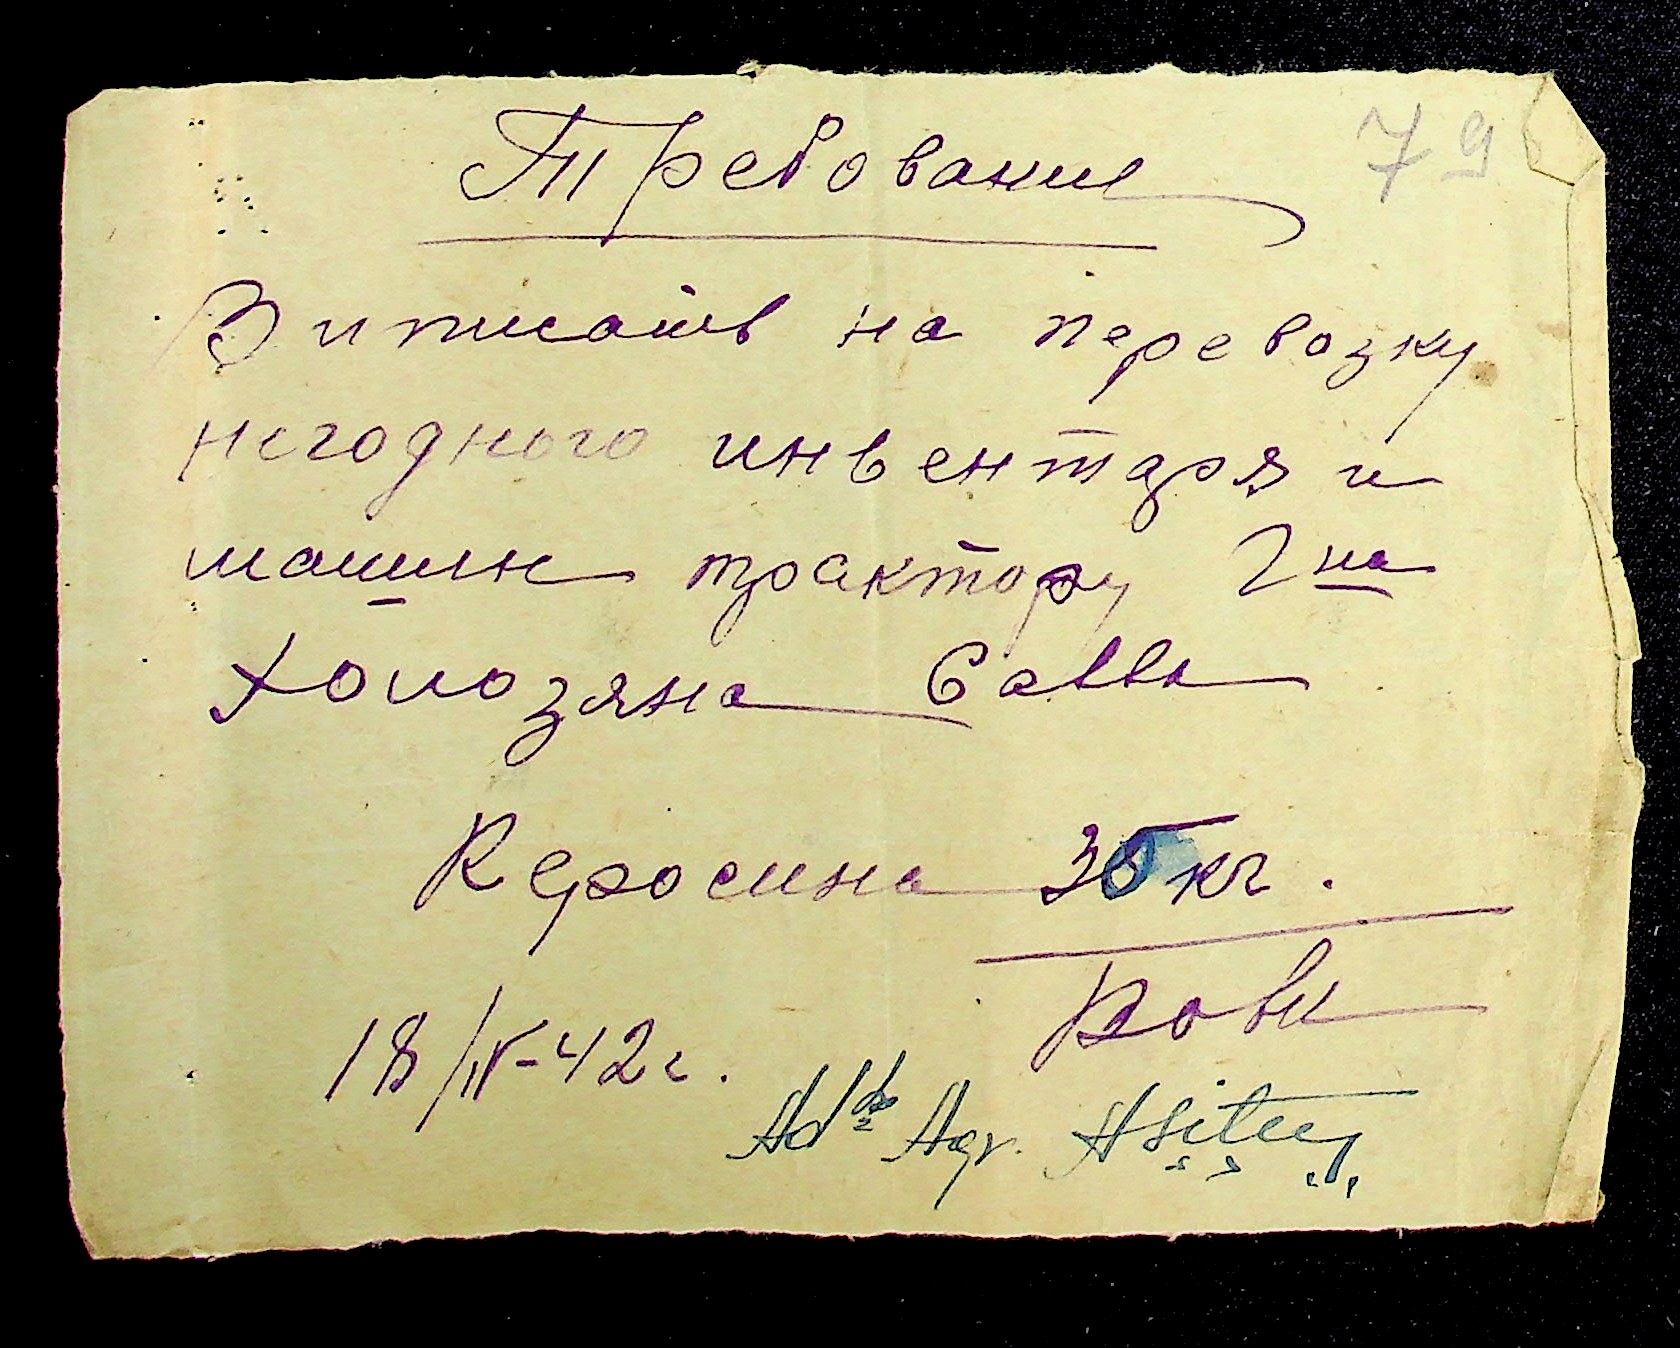 79
Требование
Виписать на перевозку
негодного инвентаря и
машин трактору 2на
Савва
Керосина 35 кг.
18/IV-42 г.
Agr.